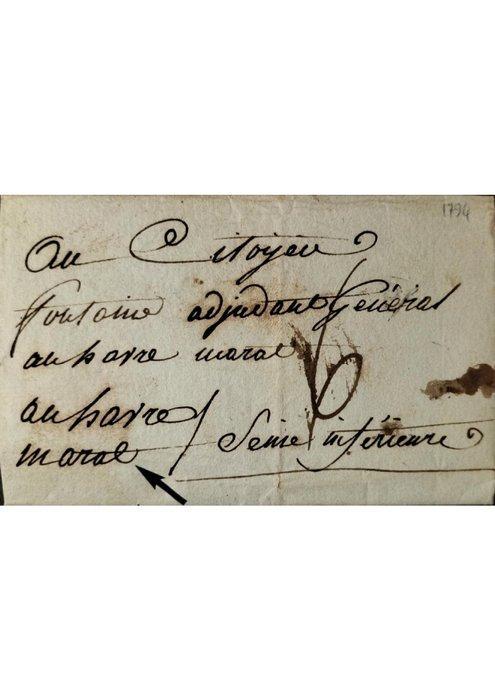 1794
Au Citoyen
fontaine adjudant Général
au havre maral
6
au havre
maral
Seine inférieure